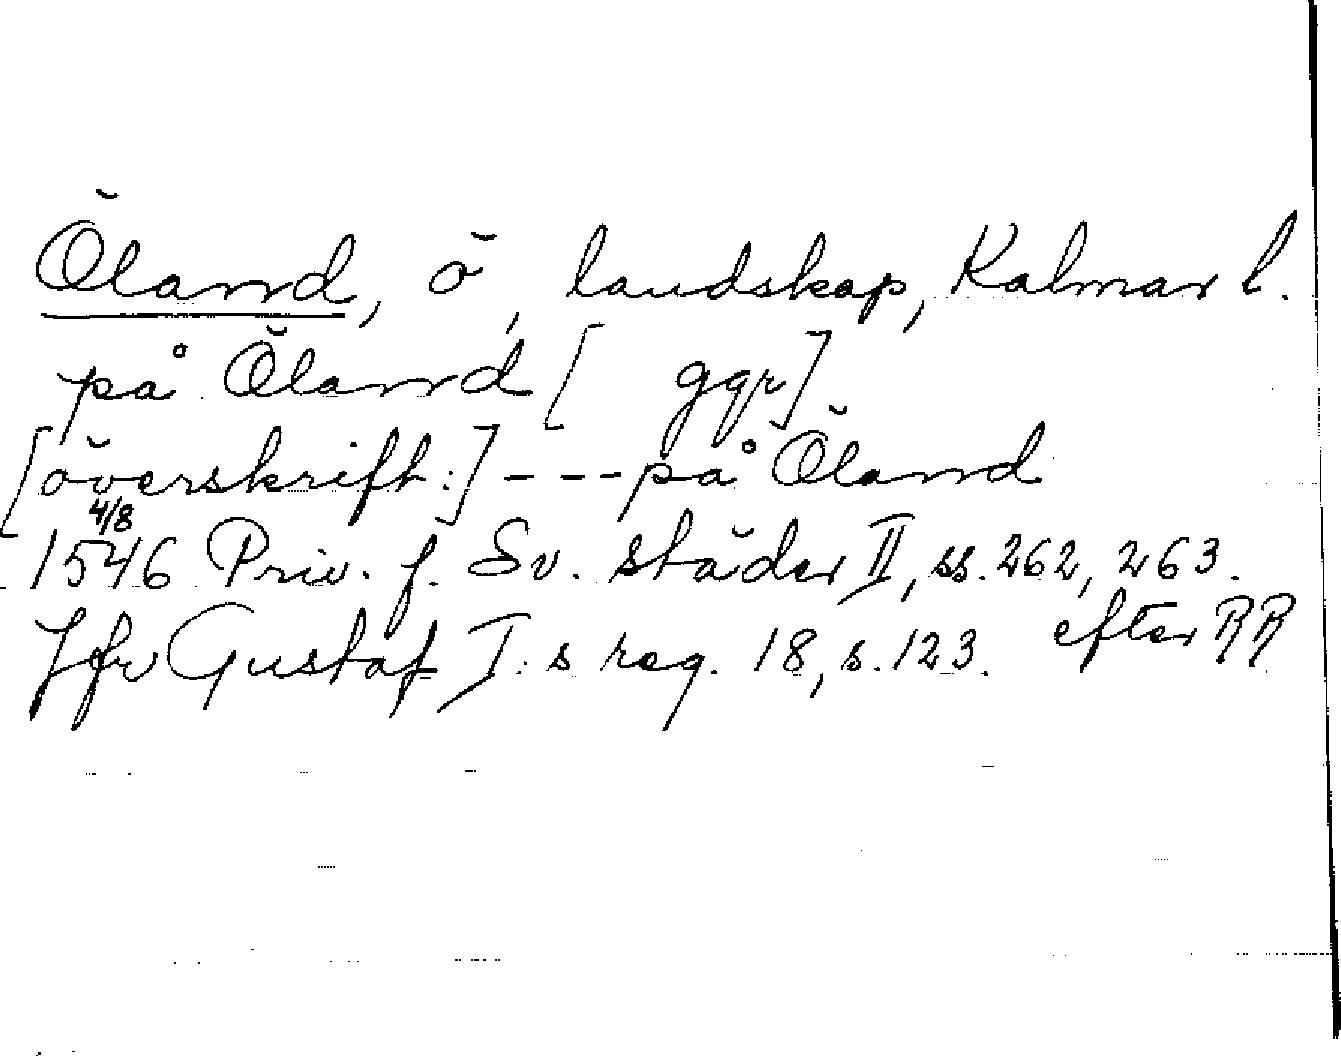 Öland, ö, landskap, Kalmar l.
på Öland [ ggr]
[överskrift:] --- på Öland
4/8
1546 Priv. f. Sv. städer II, ss. 262, 263.
efter RR
Jfr Gustaf I:s reg. 18, s. 123.